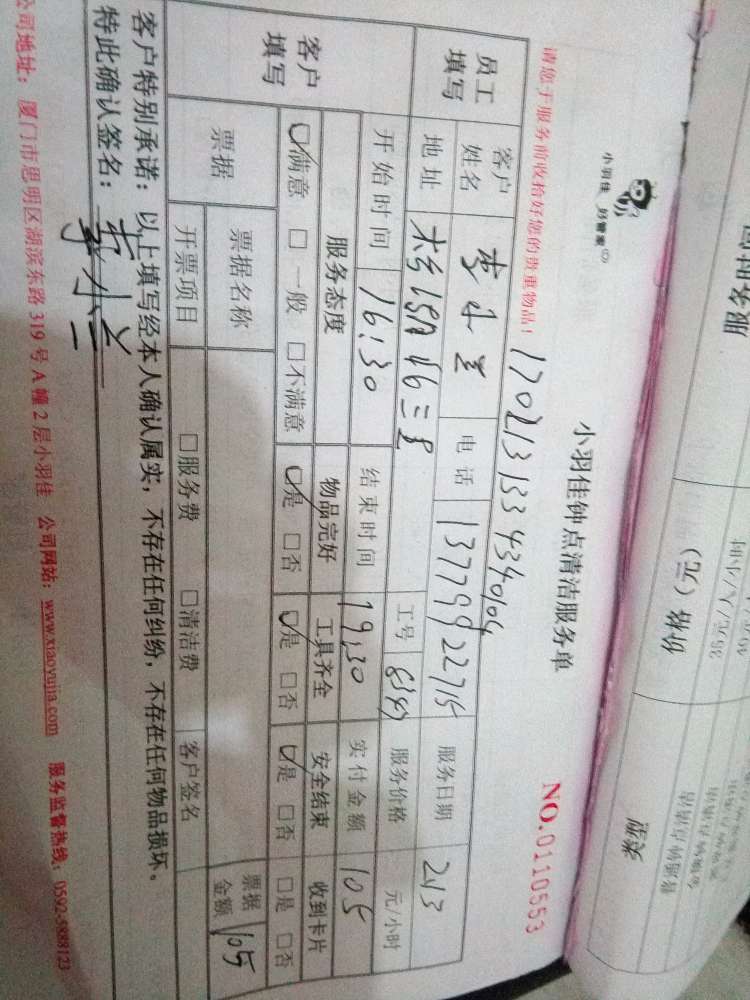 小羽佳 好管家
小羽佳钟点清洁服务单
NO.0110553
请您于服务前收拾好您的贵重物品!
员工填写
客户姓名 李小兰 电话 13779922715 服务日期 2.13
地址 工号 服务价格 元/小时
开始时间 16:30 结束时间 19:30 实付金额 105
客户填写
服务态度 物品完好 工具齐全 安全结束 收到卡片
☑满意 □一般 □不满意 ☑是 □否 ☑是 □否 ☑是 □否 □是 □否
票据 票据名称 票据金额 105
开票项目 □服务费 □清洁费 客户签名
客户特别承诺:以上填写经本人确认属实,不存在任何纠纷,不存在任何物品损坏。
特此确认签名:李小兰
公司地址:厦门市思明区湖滨东路 319 号 A 幢 2 层小羽佳 公司网站:www.xiaoyujia.com 服务监督热线:0592-5888123
服务时间
价格(元)